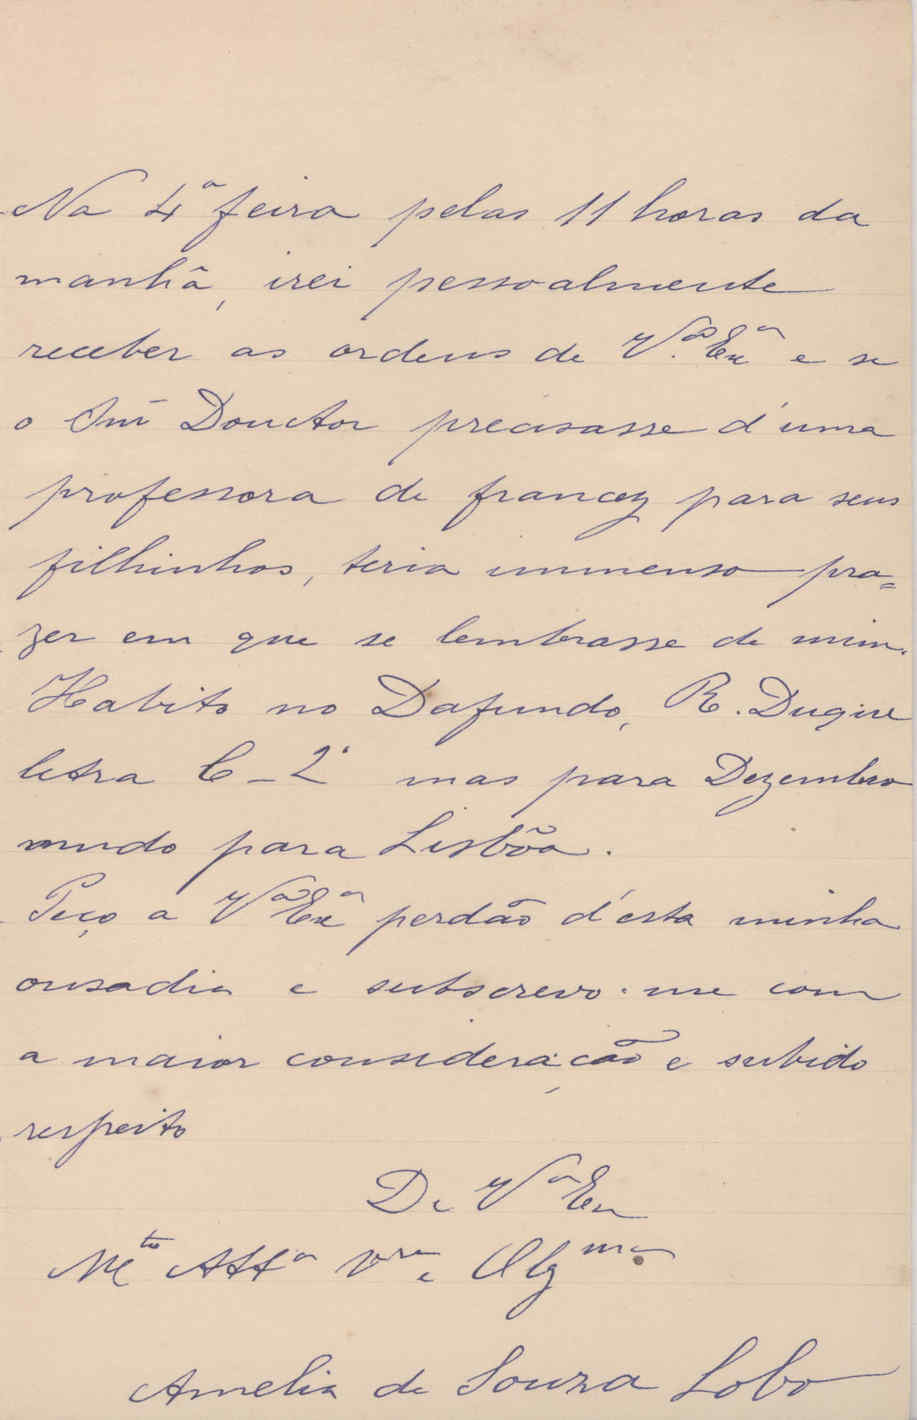 Na 4ª feira pelas 11 horas da
manhã, irei pessoalmente
receber as ordens de V.ª Exª e se
o Snr̃ Douctor precisasse d'uma
professora de francez para seus
filhinhos, teria immenso pra=
zer em que se lembrasse de mim.
Habito no Dafundo, R. Duque
letra C-2º mas para Dezembro
mudo para Lisbõa.
Peço a Vª Exª perdão d'esta minha
ousadia e subscrevo-me com
a maior consideração e subido
respeito
De Vª Ex
Mto Attª Vra e Obgma
Amelia de Souza Lobo